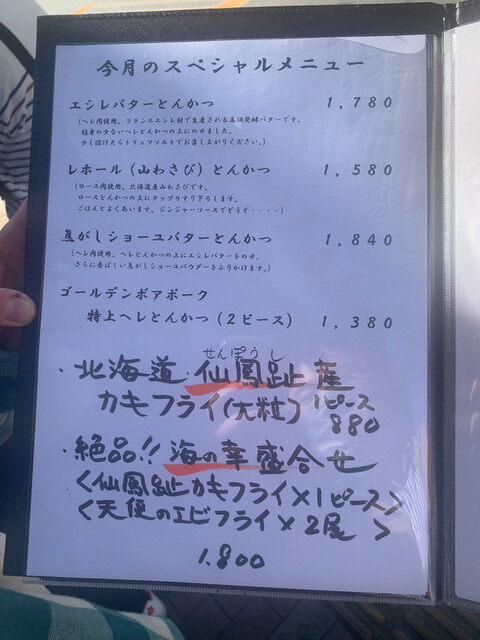 今月のスペシャルメニュー
エシレバターとんかつ 1,780
(ヘレ肉使用。フランスエシレ村で生産される高級発酵バターです。
脂身の少ないヘレとんかつの上にのせました。
少し溶けたらトリュフソルトでお召し上がりください。)
レホール (山わさび) とんかつ 1,580
(ロース肉使用。北海道産山わさびです。
ロースとんかつの上にタップリすり下ろします。
ごはんとよくあいます。ジンジャーソースでどうぞ・・・・)
焦がしショーユバターとんかつ 1,840
(ヘレ肉使用。ヘレとんかつの上にエシレバターをのせ、
さらに香ばしい焦がしショーユパウダーをふりかけます。)
ゴールデンボアポーク
特上ヘレとんかつ (2ピース) 1,380
せんぽうし
・北海道・仙鳳趾産
カキフライ(大粒) 1ピース
880
・絶品!! 海の幸盛合せ
<仙鳳趾カキフライ×1ピース>
<天使のエビフライ×2尾>
1.800